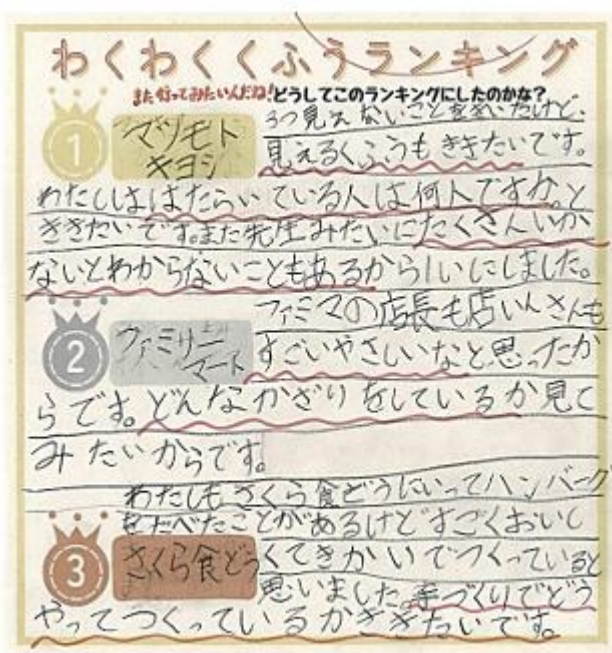 わくわくくふうランキング
また行ってみたいんだね!どうしてこのランキングにしたのかな?
1
マツモト
キヨシ
3つ見えないことをきいたけど、
見えるくふうもききたいです。
わたしははたらいている人は何人ですか。と
ききたいです。また先生みたいにたくさんいか
ないとわからないこともあるから1いにしました。
2
ファミリー
マート
ファミマの店長も店いんさんも
すごいやさしいなと思ったか
らです。どんなかざりをしているか見て
みたいからです。
3
さくら食どう
わたしもさくら食どうにいってハンバーグ
をたべたことがあるけどすごくおいし
くてきかいでつくっていると
思いました。手づくりでどう
やってつくっているかききたいです。